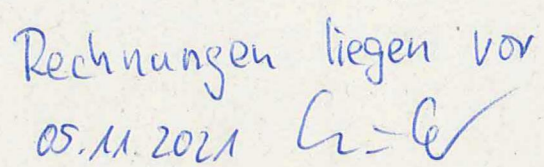 Rechnungen liegen vor
05.11.2021